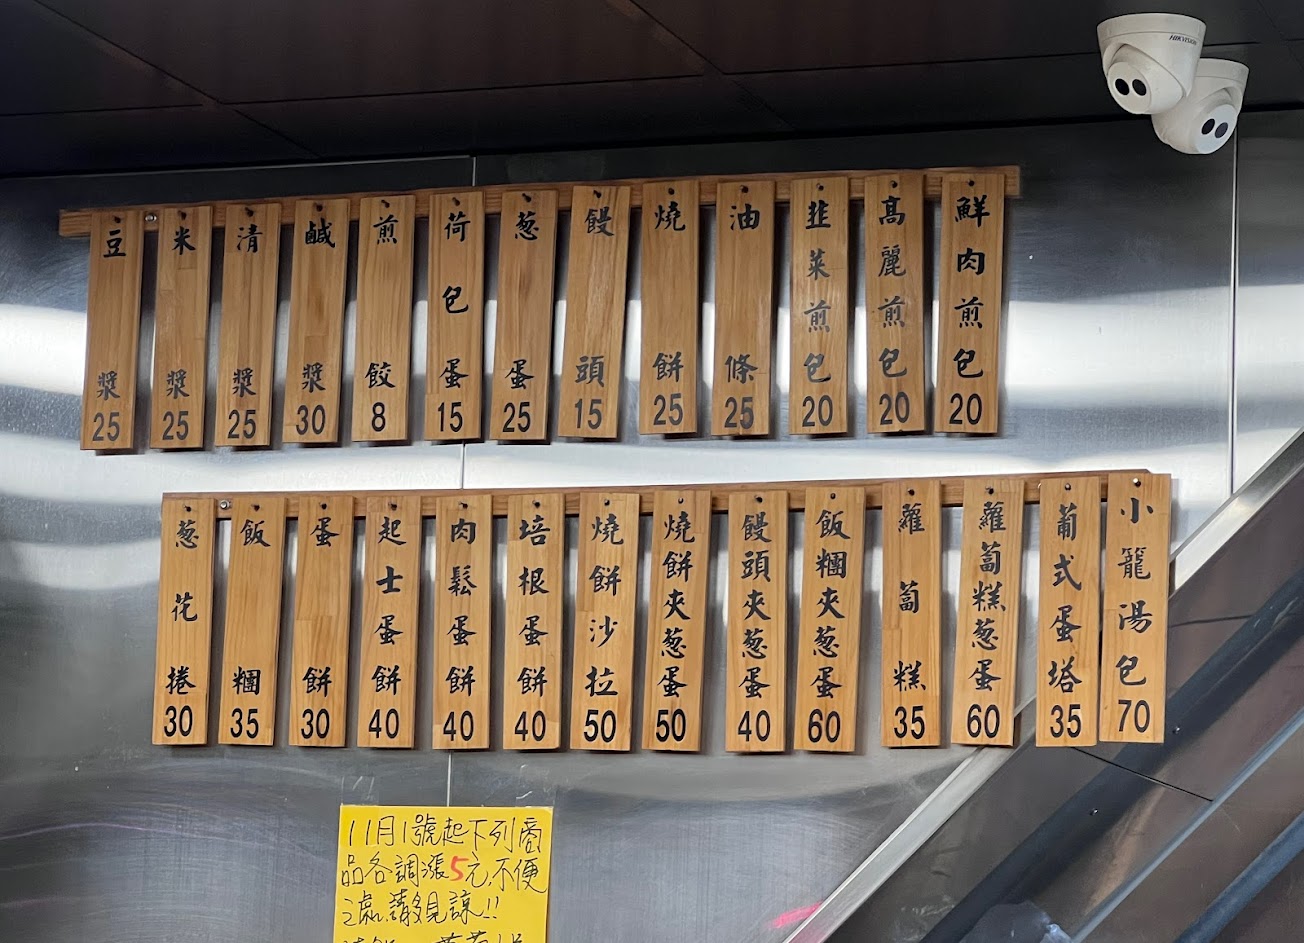 HIKVISION
鮮肉煎包20
高麗煎包20
韭菜煎包20
油條25
燒餅25
饅頭15
葱蛋25
荷包蛋15
煎餃8
鹹漿30
清漿25
米漿25
豆漿25
小籠湯包70
葡式蛋塔35
蘿蔔糕葱蛋60
蘿蔔糕35
飯糰夾葱蛋60
饅頭夾葱蛋40
燒餅夾葱蛋50
燒餅沙拉50
培根蛋餅40
肉鬆蛋餅40
起士蛋餅40
蛋餅30
飯糰35
葱花捲30
11月1號起下列商
品各調漲5元,不便
之處,請多見諒!!